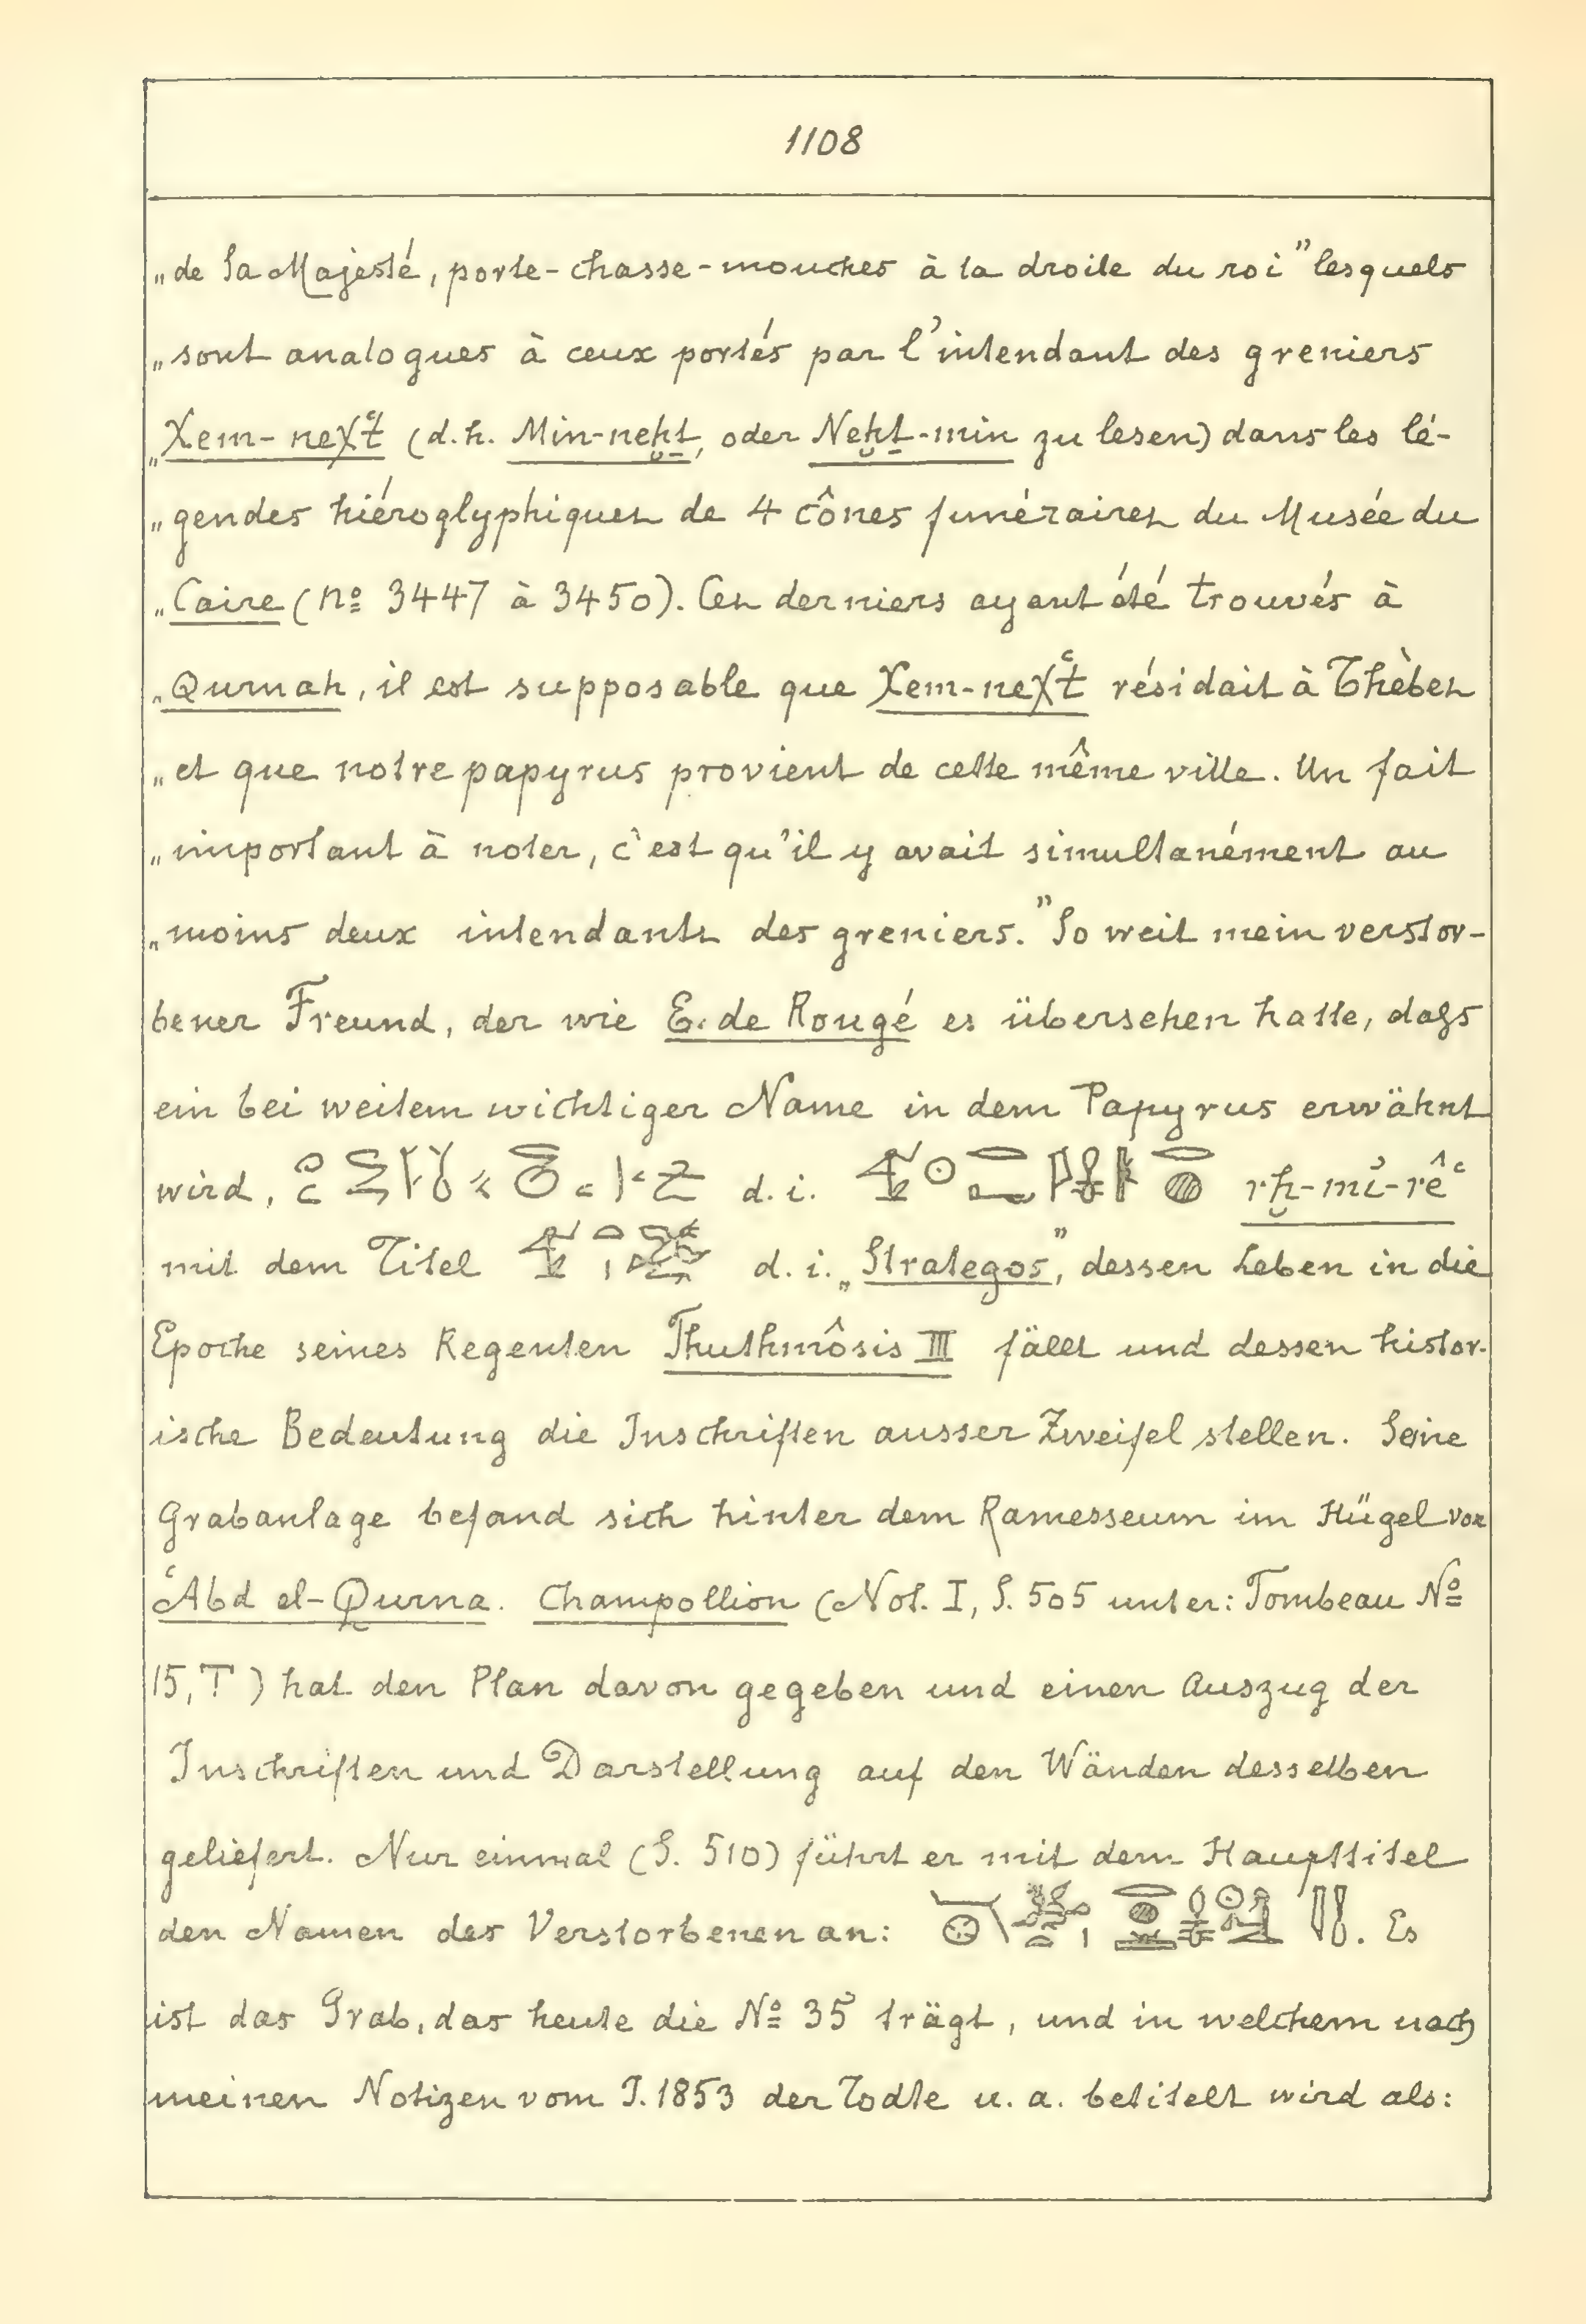 1108
„de Sa Majesté, porte-chasse-mouches à la droite du roi” lesquels
„sont analogues à ceux portés par l'intendant des greniers
„Xem-neχt̔ (d.h. Min-neḫt, oder Neḫt-min zu lesen) dans les lé-
„gendes hiéroglyphiques de 4 cônes funéraires du Musée du
„Caire (nº 3447 à 3450). Ces derniers ayant été trouvés à
„Qurnah, il est supposable que Xem-neχt̔ résidait à Thèbes
„et que notre papyrus provient de cette même ville. Un fait
„important à noter, c'est qu'il y avait simultanément au
„moins deux intendants des greniers.” So weit mein verstor-
bener Freund, der wie E. de Rougé es übersehen hatte, daſs
ein bei weitem wichtiger Name in dem Papyrus erwähnt
wird, d. i. rḫ-mỉ-rê̔
mit dem Titel d. i. „Strategos”, dessen Leben in die
Epoche seines Regenten Thuthmôsis III fällt und dessen histor-
ische Bedeutung die Inschriften ausser Zweifel stellen. Seine
Grabanlage befand sich hinter dem Ramesseum im Hügel von
̔Abd el-Qurna. Champollion (Not. I, S. 505 unter: Tombeau Nº
15, T) hat den Plan davon gegeben und einen Auszug der
Inschriften und Darstellung auf den Wänden desselben
geliefert. Nur einmal (S. 510) führt er mit dem Haupttitel
den Namen des Verstorbenen an: . Es
ist das Grab, das heute die Nº 35 trägt, und in welchem nach
meinen Notizen vom J. 1853 der Todte u. a. betitelt wird als: